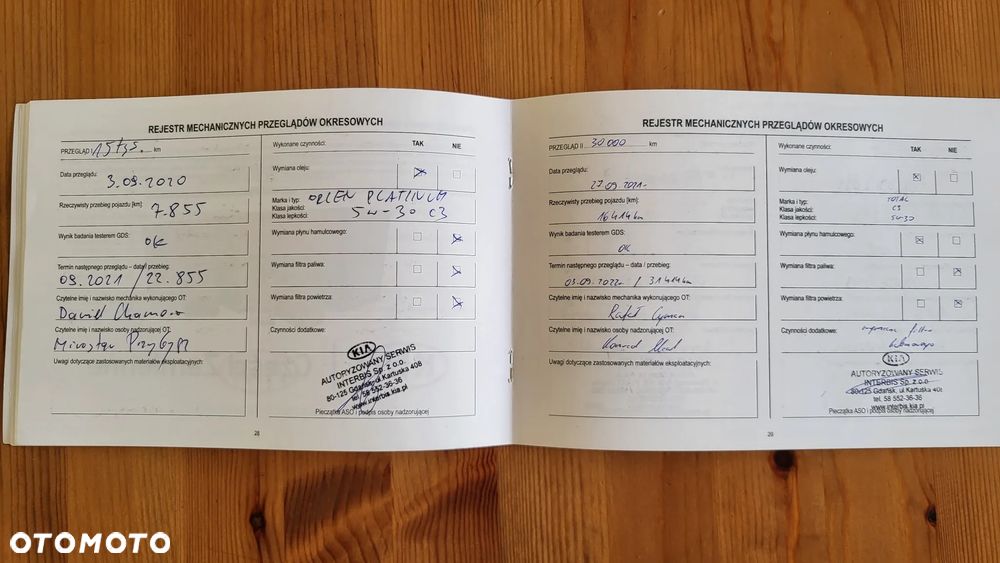 REJESTR MECHANICZNYCH PRZEGLĄDÓW OKRESOWYCH
PRZEGLĄD I 15 tyś. km
Data przeglądu:
3.09.2020
Rzeczywisty przebieg pojazdu [km]:
7.855
Wynik badania testerem GDS:
OK
Termin następnego przeglądu – data / przebieg:
09.2021 / 22.855
Czytelne imię i nazwisko mechanika wykonującego OT:
Dawid
Czytelne imię i nazwisko osoby nadzorującej OT:
Mirosław
Uwagi dotyczące zastosowanych materiałów eksploatacyjnych:
Wykonane czynności: TAK NIE
Wymiana oleju:
Marka i typ: ORLEN PLATINUM
Klasa jakości:
Klasa lepkości: 5W-30 C3
Wymiana płynu hamulcowego:
Wymiana filtra paliwa:
Wymiana filtra powietrza:
Czynności dodatkowe:
KIA
AUTORYZOWANY SERWIS
INTERBIS Sp. z o.o.
80-125 Gdańsk, ul Kartuska 408
tel. 58 552-36-36
www.interbis.kia.pl
Pieczątka ASO i podpis osoby nadzorującej
28
REJESTR MECHANICZNYCH PRZEGLĄDÓW OKRESOWYCH
PRZEGLĄD II 30.000 km
Data przeglądu:
27.09.2021
Rzeczywisty przebieg pojazdu [km]:
16414 km
Wynik badania testerem GDS:
OK
Termin następnego przeglądu – data / przebieg:
03.09.2022 / 31414 km
Czytelne imię i nazwisko mechanika wykonującego OT:
Rafał
Czytelne imię i nazwisko osoby nadzorującej OT:
Konrad
Uwagi dotyczące zastosowanych materiałów eksploatacyjnych:
Wykonane czynności: TAK NIE
Wymiana oleju:
Marka i typ: TOTAL
Klasa jakości: C3
Klasa lepkości: 5W-30
Wymiana płynu hamulcowego:
Wymiana filtra paliwa:
Wymiana filtra powietrza:
Czynności dodatkowe: filtra
KIA
AUTORYZOWANY SERWIS
INTERBIS Sp. z o.o.
80-125 Gdańsk, ul Kartuska 408
tel. 58 552-36-36
www.interbis.kia.pl
Pieczątka ASO i podpis osoby nadzorującej
29
OTOMOTO